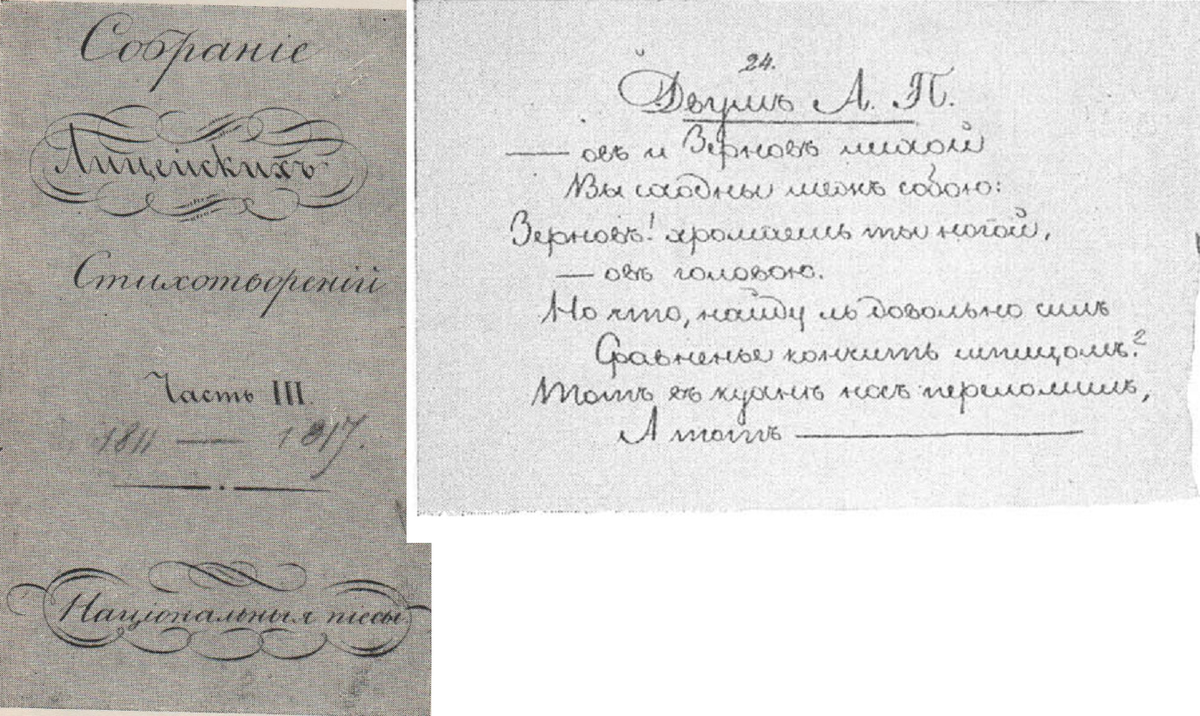 Собраніе
Лицейскихъ
Стихотвореній
Часть III.
1811 — 1817.
Національныя піесы
24.
Двумъ А. П.
— овъ и Зерновъ лихой
Вы сходны межъ собою:
Зерновъ! хромаешь ты ногой,
— овъ головою.
Но что, найду ль довольно силъ
Сравненье кончить шпицомъ?
Тотъ въ кухнѣ носъ переломилъ,
А тотъ —